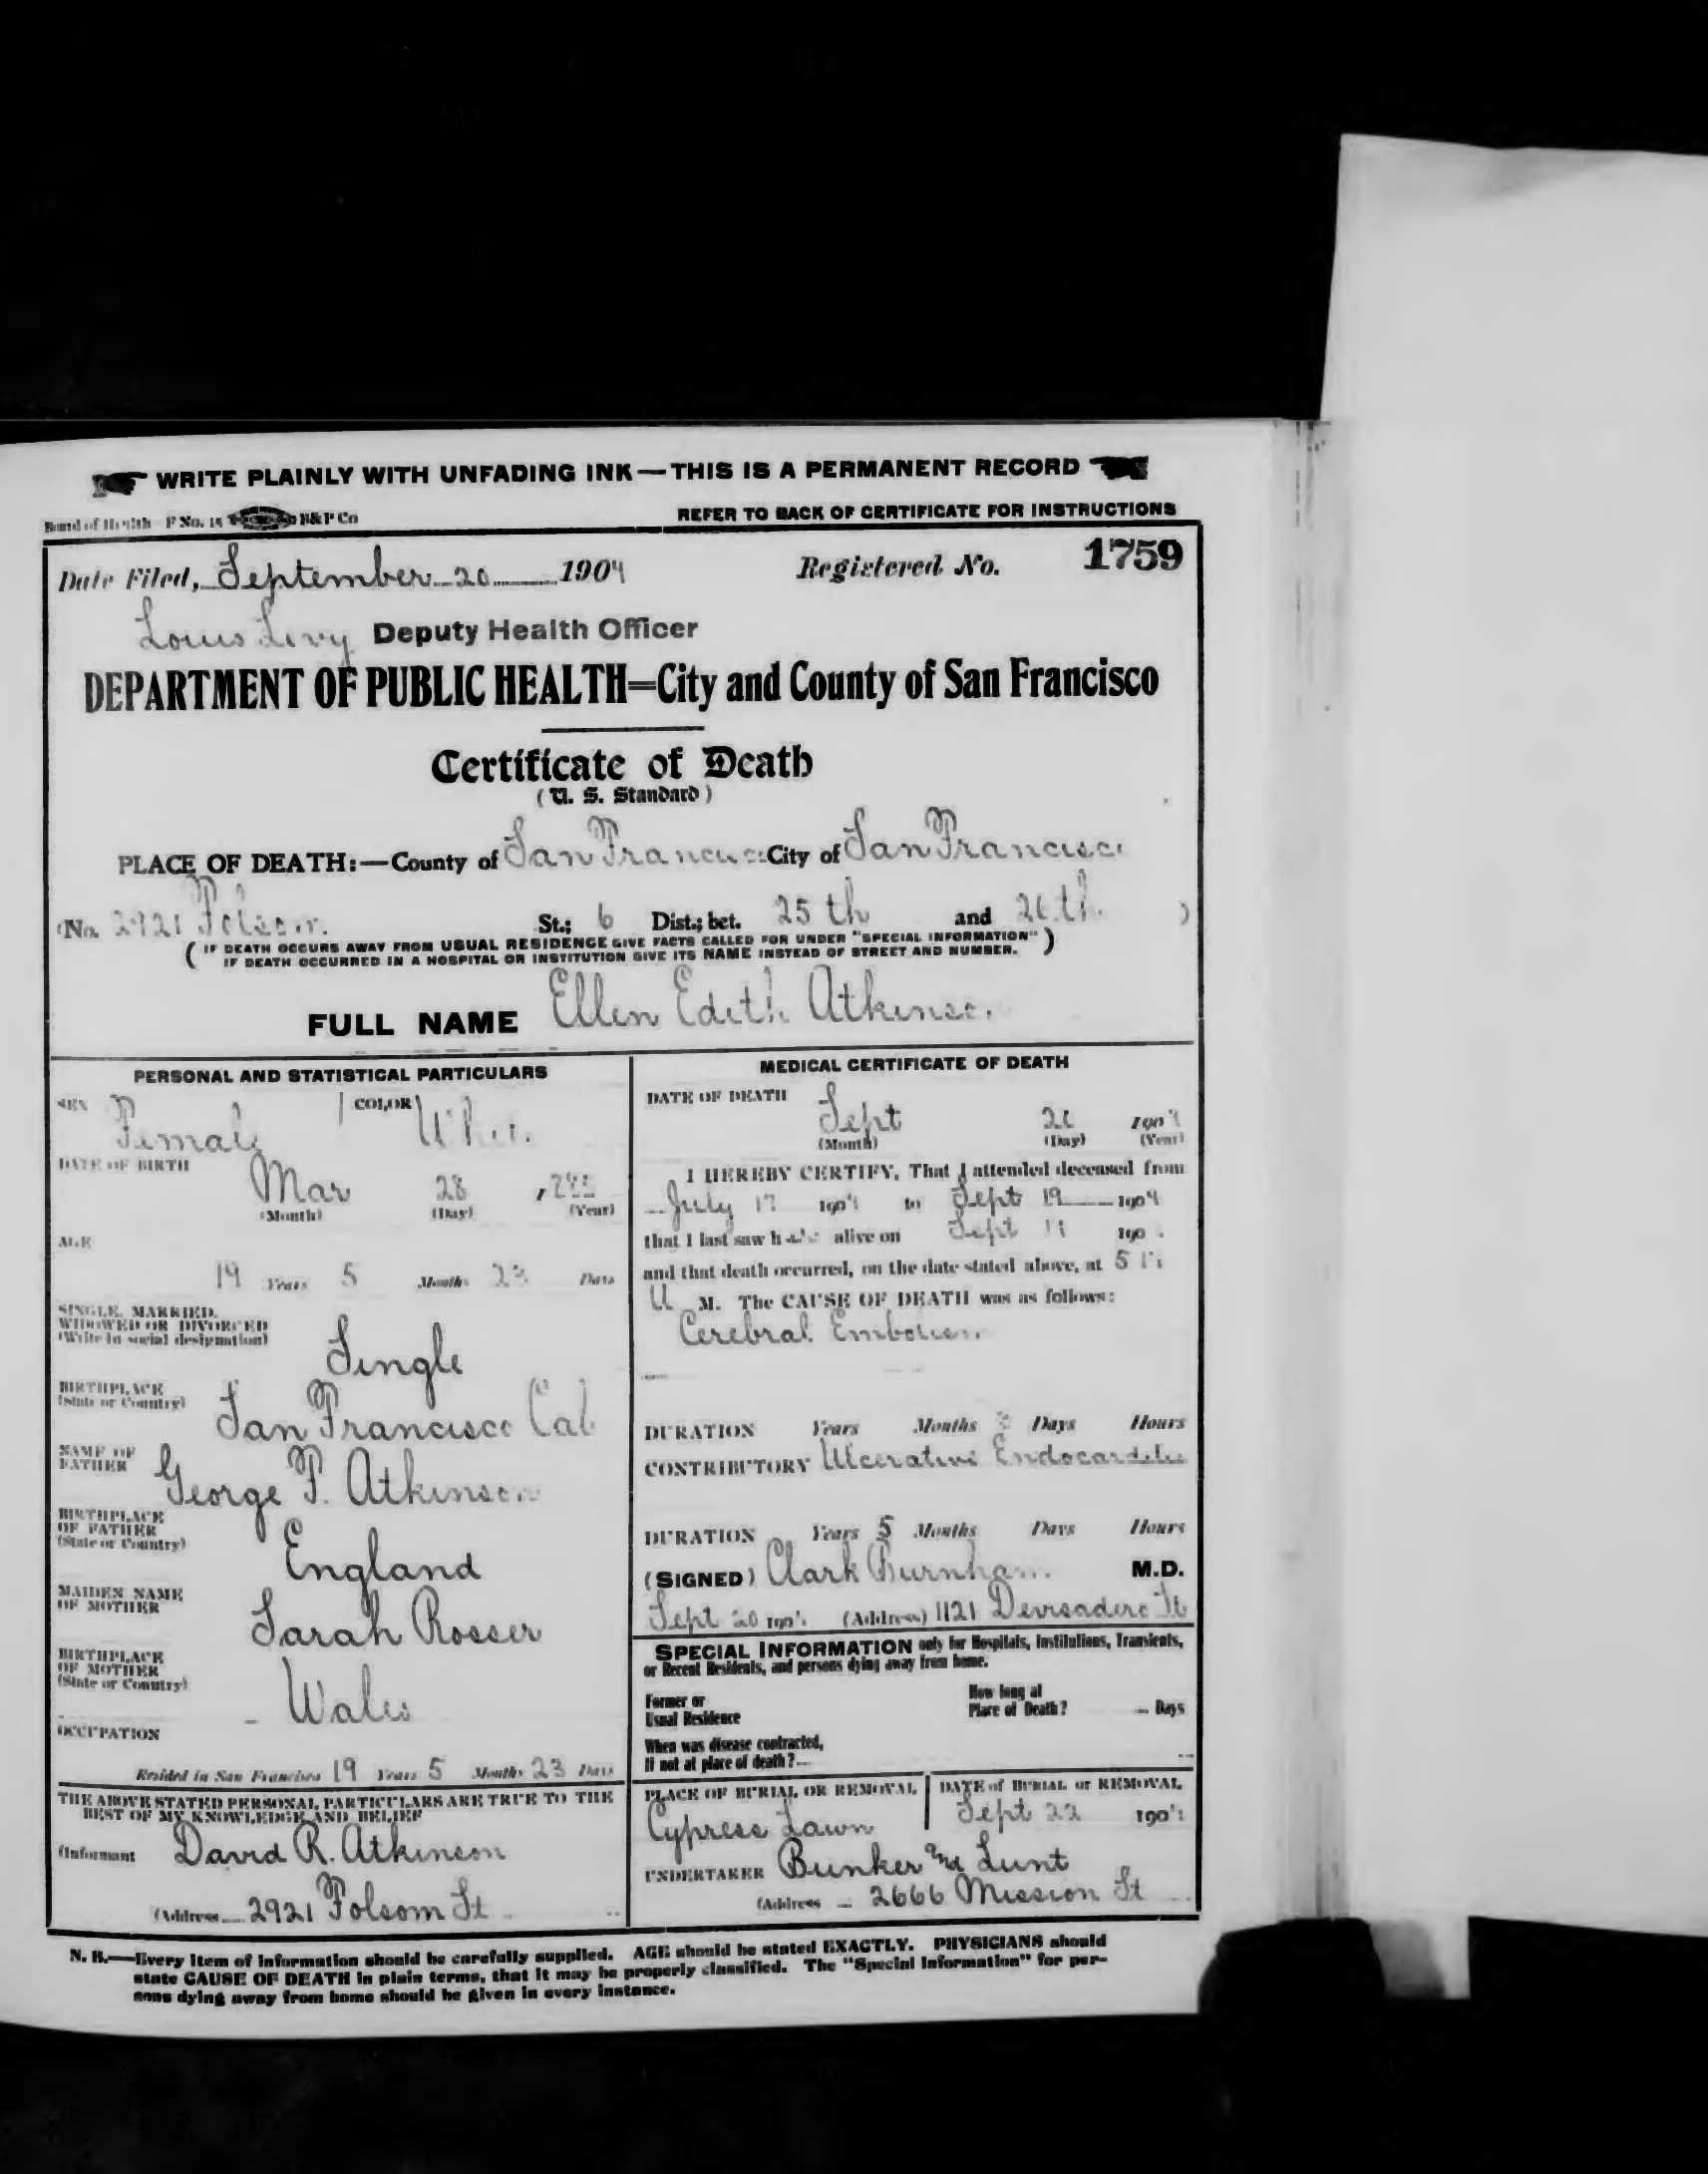 WRITE PLAINLY WITH UNFADING INK—THIS IS A PERMANENT RECORD
Board of Health—F No. 15 B&P Co
REFER TO BACK OF CERTIFICATE FOR INSTRUCTIONS
Date Filed, September 20 1904 Registered No. 1759
Louis Levy Deputy Health Officer
DEPARTMENT OF PUBLIC HEALTH=City and County of San Francisco
Certificate of Death
(U. S. Standard)
PLACE OF DEATH:—County of San Francisco City of San Francisco
(No. 2921 Folsom St.; 6 Dist.; bet. 25th and 26th )
( IF DEATH OCCURS AWAY FROM USUAL RESIDENCE GIVE FACTS CALLED FOR UNDER "SPECIAL INFORMATION" )
IF DEATH OCCURRED IN A HOSPITAL OR INSTITUTION GIVE ITS NAME INSTEAD OF STREET AND NUMBER.
FULL NAME Ellen Edith Atkinson
PERSONAL AND STATISTICAL PARTICULARS
SEX Female COLOR White
DATE OF BIRTH
Mar 28
(Month) (Day) (Year)
AGE
19 Years 5 Months 23 Days
SINGLE, MARRIED,
WIDOWED OR DIVORCED
(Write in social designation)
Single
BIRTHPLACE
(State or Country)
San Francisco Cal
NAME OF
FATHER
George F. Atkinson
BIRTHPLACE
OF FATHER
(State or Country)
England
MAIDEN NAME
OF MOTHER
Sarah Rosser
BIRTHPLACE
OF MOTHER
(State or Country)
Wales
OCCUPATION
Resided in San Francisco 19 Years 5 Months 23 Days
THE ABOVE STATED PERSONAL PARTICULARS ARE TRUE TO THE
BEST OF MY KNOWLEDGE AND BELIEF
(Informant David R. Atkinson
(Address 2921 Folsom St
MEDICAL CERTIFICATE OF DEATH
DATE OF DEATH
Sept 20 1904
(Month) (Day) (Year)
I HEREBY CERTIFY, That I attended deceased from
July 17 1904 to Sept 19 1904
that I last saw her alive on Sept 190
and that death occurred, on the date stated above, at 5
M. The CAUSE OF DEATH was as follows:
Cerebral Embolism
DURATION Years Months Days Hours
CONTRIBUTORY Ulcerative Endocarditis
DURATION Years 5 Months Days Hours
(SIGNED) Clark Burnham M.D.
Sept 20 1904 (Address) 1121 Devisadero St
SPECIAL INFORMATION only for Hospitals, Institutions, Transients,
or Recent Residents, and persons dying away from home.
Former or
Usual Residence
How long at
Place of Death? Days
When was disease contracted,
If not at place of death?
PLACE OF BURIAL OR REMOVAL
Cypress Lawn
DATE of BURIAL or REMOVAL
Sept 22 1904
UNDERTAKER Bunker and Lunt
(Address 2666 Mission St
N. B.—Every item of information should be carefully supplied. AGE should be stated EXACTLY. PHYSICIANS should
state CAUSE OF DEATH in plain terms, that it may be properly classified. The "Special Information" for per-
sons dying away from home should be given in every instance.